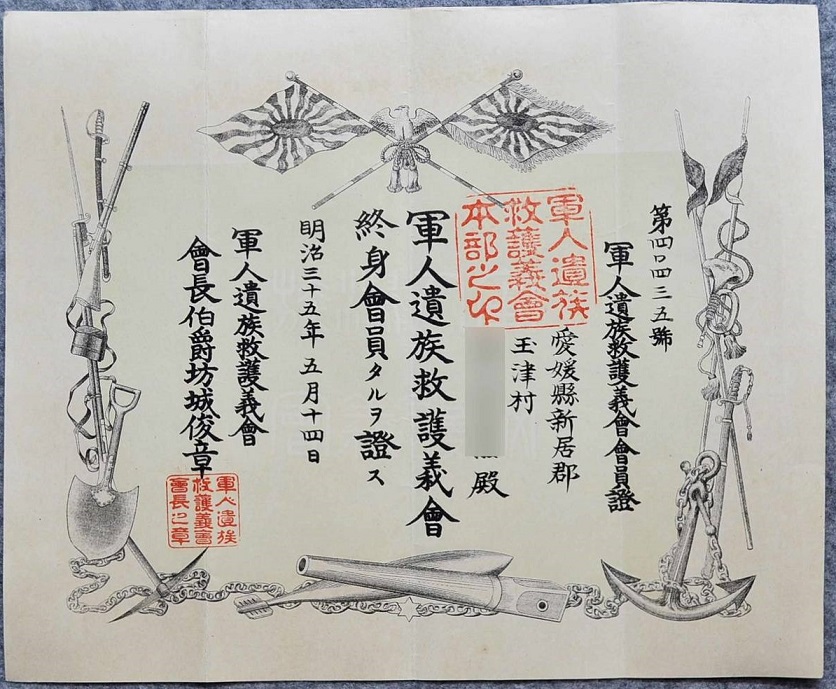 第四〇四三五號
軍人遺族救護義會會員證
愛媛縣新居郡
玉津村
殿
軍人遺族
救護義會
本部之印
軍人遺族救護義會
終身會員タルヲ證ス
明治三十五年五月十四日
軍人遺族救護義會
會長伯爵坊城俊章
軍人遺族
救護義會
會長之章